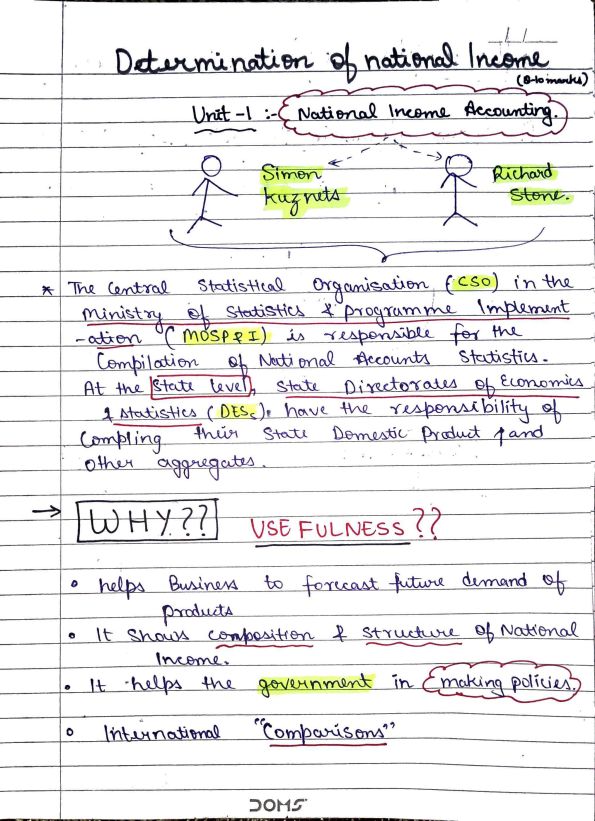 Determination of national Income
(8-10 marks)
Unit-1 :- National Income Accounting.
Simon Kuznets
Richard Stone.
* The Central Statistical Organisation (CSO) in the
Ministry of Statistics & Programme Implement
-ation (MOSP&I) is responsible for the
Compilation of National Accounts Statistics.
At the State level, State Directorates of Economics
& Statistics (DES), have the responsibility of
Compling their State Domestic Product and
other aggregates.
→ WHY?? USEFULNESS??
• helps Business to forecast future demand of
products
• It shows composition & structure of National
Income.
• It helps the government in making policies.
• International "Comparisons"
DOMS